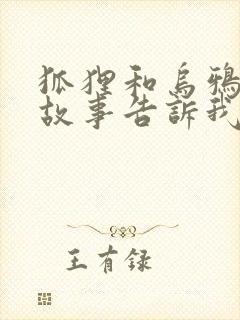 狐狸和烏鴉
故事告訴我
王有録